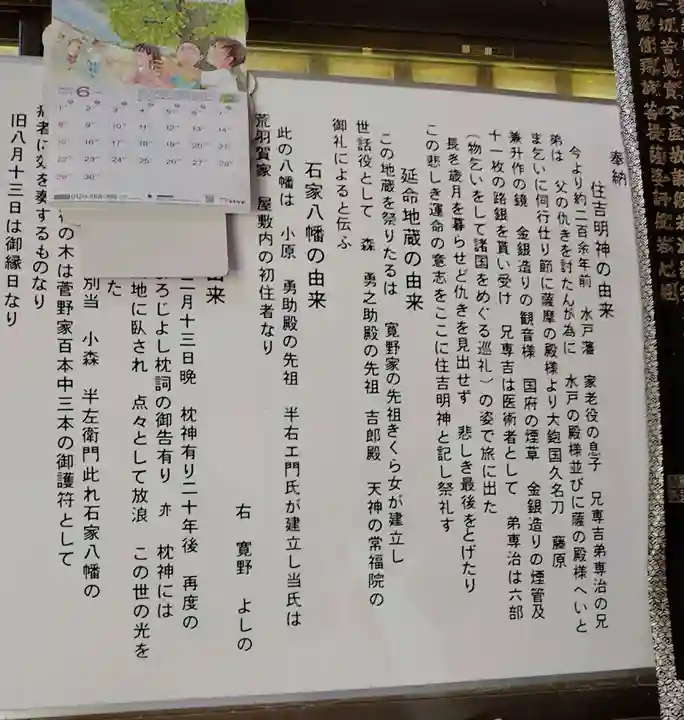 奉納
住吉明神の由来
今より約二百余年前 水戸藩 家老役の息子 兄専吉弟専治の兄
弟は 父の仇きを討たんが為に 水戸の殿様並びに薩の殿様へいと
ま乞いに伺行仕り節に薩摩の殿様より大鉋国久名刀 藤原
兼升作の鏡 金銀造りの観音様 国府の煙草 金銀造りの煙管及
十一枚の路銀を貰い受け 兄専吉は医術者として 弟専治は六部
(物乞いをして諸国をめぐる巡礼)の姿で旅に出た
長き歳月を暮らせど仇きを見出せず 悲しき最後をとげたり
この悲しき運命の意志をここに住吉明神と記し祭礼す
延命地蔵の由来
この地蔵を祭りたるは 寛野家の先祖きくら女が建立し
世話役として 森 勇之助殿の先祖 吉郎殿 天神の常福院の
御礼によると伝ふ
石家八幡の由来
此の八幡は 小原 勇助殿の先祖 半右エ門氏が建立し当氏は
荒羽賀家 屋敷内の初住者なり
右 寛野 よしの
由来
二月十三日晩 枕神有り二十年後 再度の
ろじよし枕詞の御告有り 亦 枕神には
地に臥され 点々として放浪 この世の光を
た
別当 小森 半左衛門此れ石家八幡の
の木は菅野家百本中三本の御護符として
病者に効を奏するものなり
旧八月十三日は御縁日なり
6
1 2 3 4 5 6 7
8 9 10 11 12 13 14
15 16 17 18 19 20 21
22 23 24 25 26 27 28
29 30